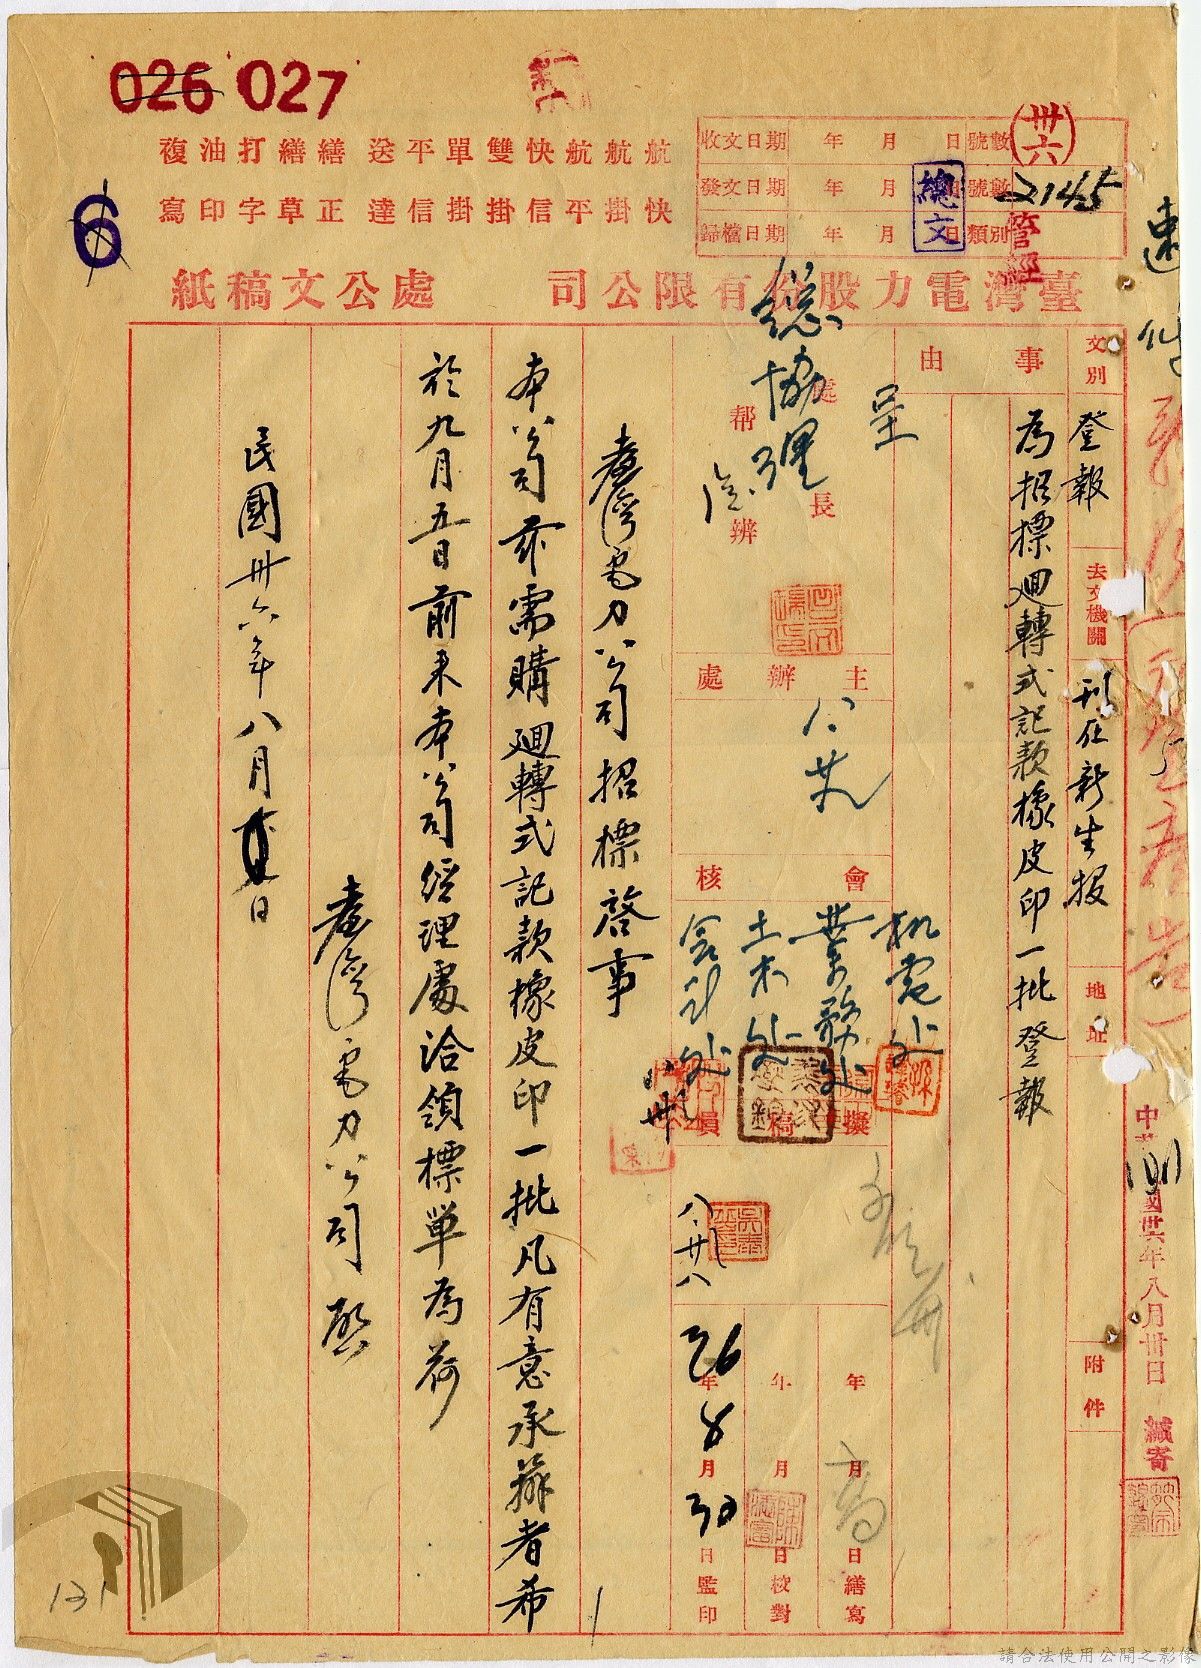 026 027
6
航快 航掛 航平 快信 雙掛 單掛 平信 送達 繕正 繕草 打字 油印 複寫
收文日期 年 月 日 號數
發文日期 年 月 日 號數
歸檔日期 年 月 日 類別
(卅六)
2145
管經
總文
臺灣電力股份有限公司 處公文稿紙
速件
文別 登報
去文機關 刊在新生報
地址
附件
事由
為招標廻轉式記款橡皮印一批登報
呈
總協理
處長
幫辦
主辦處
會核
机電处
業務处
土木处
会計处
擬稿員
八、廿八
36年8月30日監印
年月日校對
年月日繕寫
臺灣電力公司招標啓事
本公司茲需購廻轉式記款橡皮印一批凡有意承辦者希
於九月五日前來本公司經理處洽領標單為荷
臺灣電力公司啟
民國卅六年八月 日
國卅六年八月卅日 緘寄
131
請合法使用公開之影像